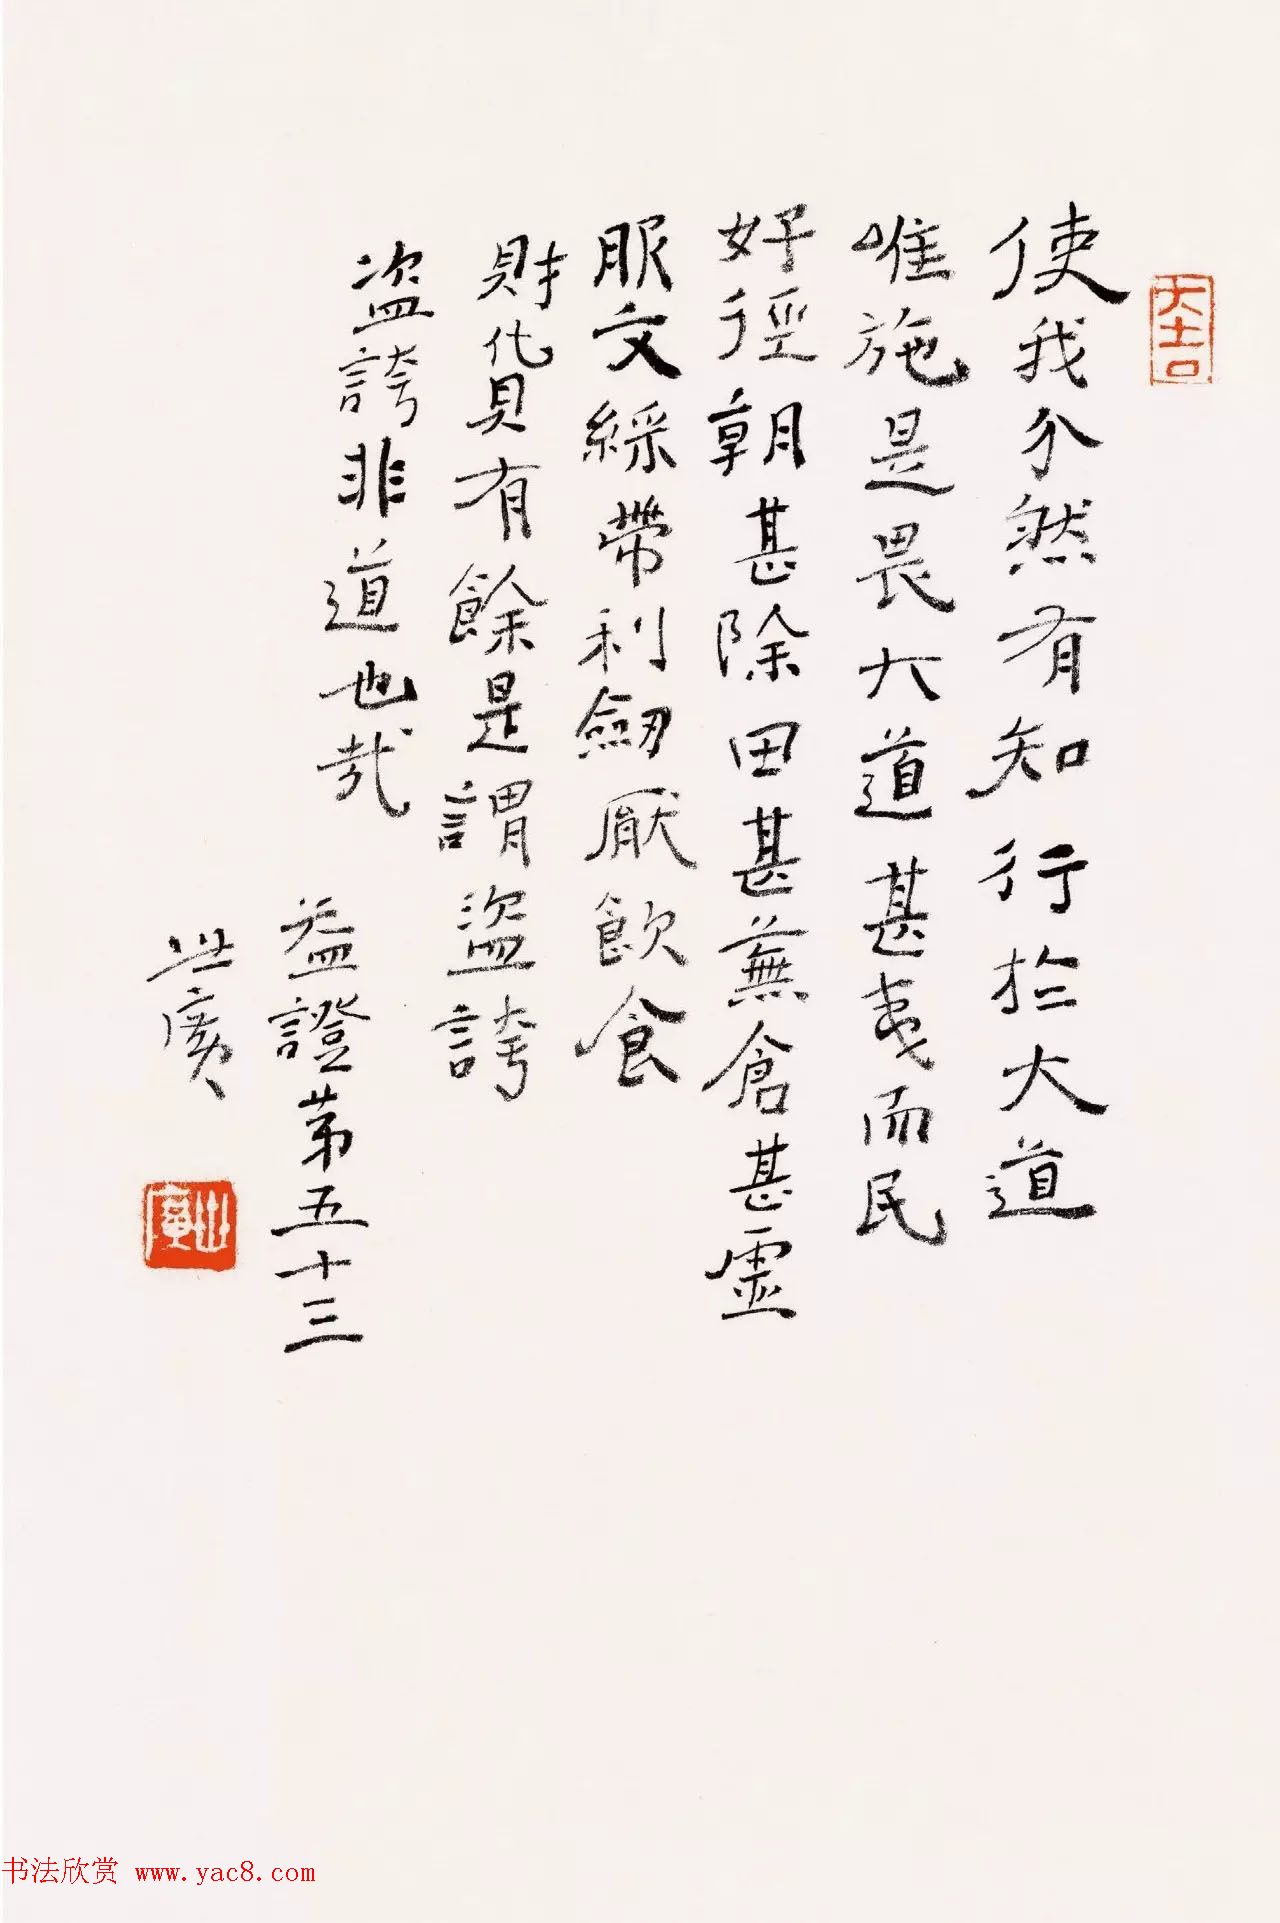 大吉
使我介然有知行於大道
唯施是畏大道甚夷而民
好徑朝甚除田甚蕪倉甚虚
服文綵帶利劒厭飲食
財貨有餘是謂盜誇
盜誇非道也哉
益證第五十三
世廣
世廣
书法欣赏 www.yac8.com